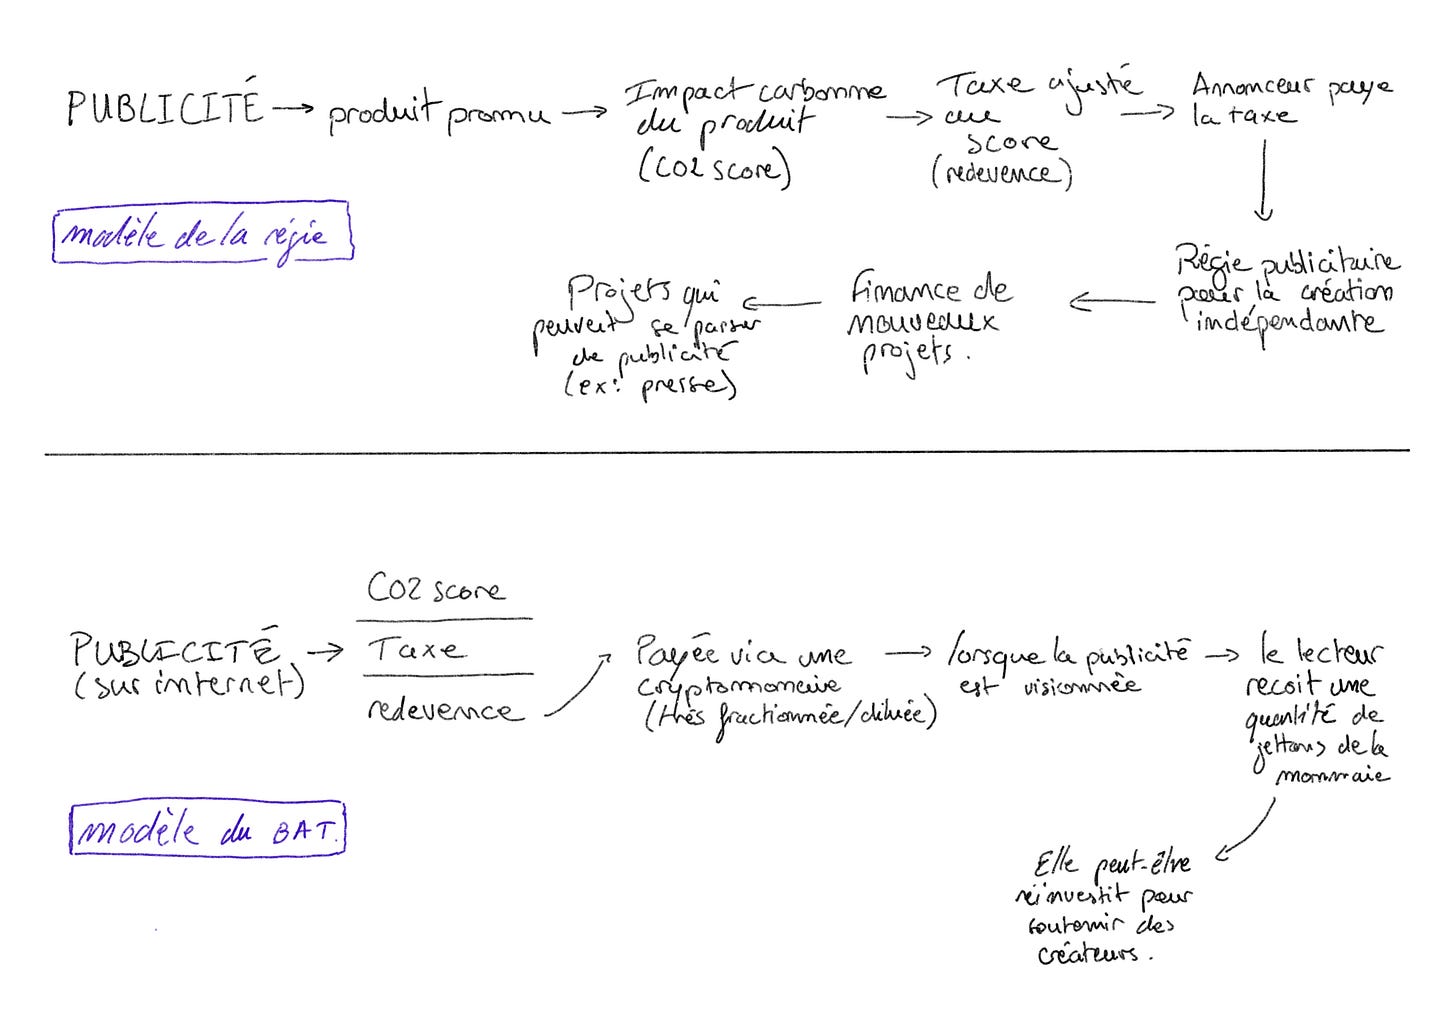 PUBLICITÉ → produit promu →
Impact carbonne
du produit
(CO2 score)
→
Taxe ajusté
au
score
(redevence)
→
Annonceur paye
la taxe
Régie publicitaire
pour la création
indépendante
Finance de
nouveaux
projets.
Projets qui
peuvent se passer
de publicité
(ex: presse)
modèle de la régie
PUBLICITÉ
(sur internet)
→
CO2 score
Taxe
redevence
Payée via une
cryptomonaie
(très fractionnée/diluée)
→
lorsque la publicité
est visionnée
→
le lecteur
recoit une
quantité de
jettons de la
monnaie
Elle peut-être
réinvestit pour
soutenir des
créateurs.
modèle du BAT.